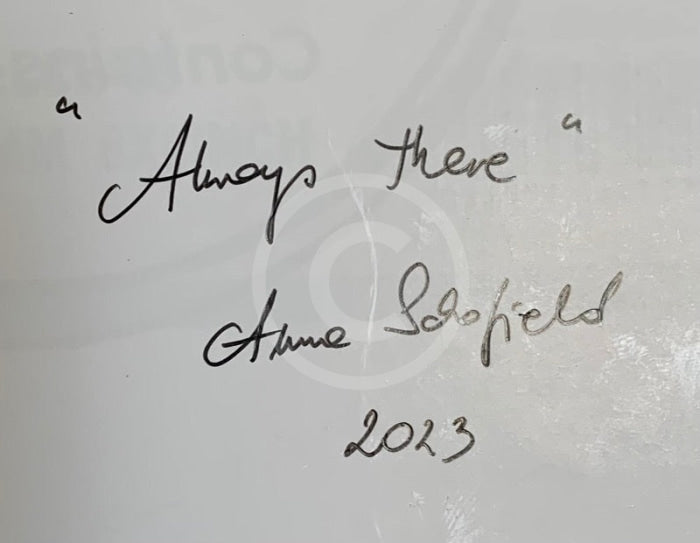 "Always there"
Anne Schofield
2023
©